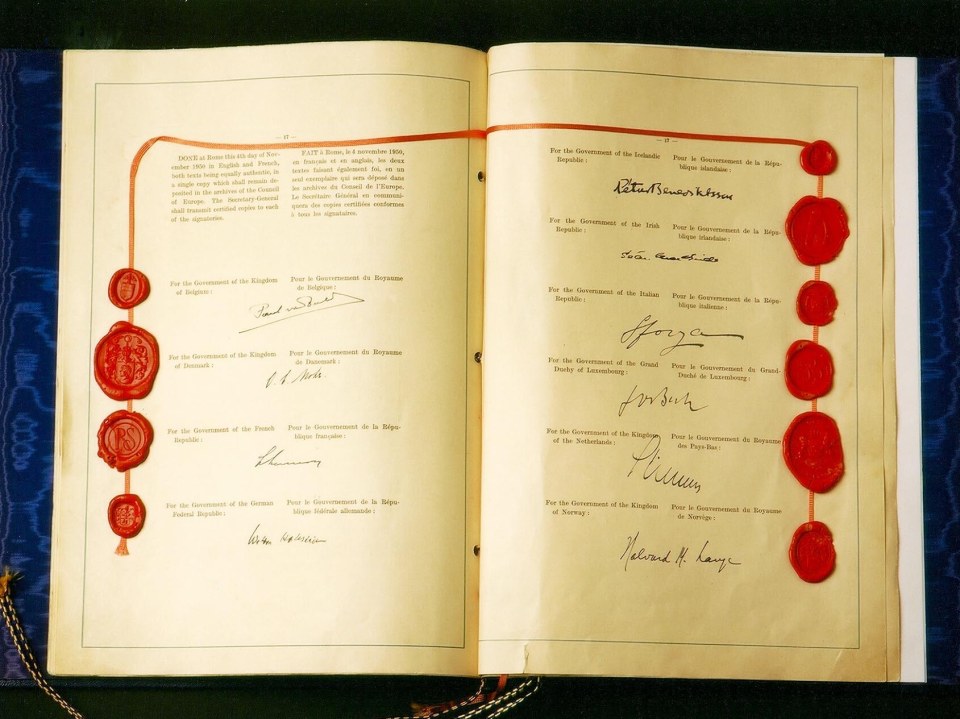 — 47 —
DONE at Rome this 4th day of Nov-
ember 1950 in English and French,
both texts being equally authentic, in
a single copy which shall remain de-
posited in the archives of the Council
of Europe. The Secretary-General
shall transmit certified copies to each
of the signatories.
FAIT à Rome, le 4 novembre 1950,
en français et en anglais, les deux
textes faisant également foi, en un
seul exemplaire qui sera déposé dans
les archives du Conseil de l'Europe.
Le Secrétaire Général en communi-
quera des copies certifiées conformes
à tous les signataires.
For the Government of the Kingdom
of Belgium :
Pour le Gouvernement du Royaume
de Belgique :
For the Government of the Kingdom
of Denmark :
Pour le Gouvernement du Royaume
de Danemark :
For the Government of the French
Republic :
Pour le Gouvernement de la Répu-
blique française :
RS
For the Government of the German
Federal Republic :
Pour le Gouvernement de la Répu-
blique fédérale allemande :
For the Government of the Icelandic
Republic :
Pour le Gouvernement de la Répu-
blique islandaise :
Pétur Benediktsson
For the Government of the Irish
Republic :
Pour le Gouvernement de la Répu-
blique irlandaise :
For the Government of the Italian
Republic :
Pour le Gouvernement de la Répu-
blique italienne :
Sforza
For the Government of the Grand
Duchy of Luxembourg :
Pour le Gouvernement du Grand-
Duché de Luxembourg :
Jos Bech
For the Government of the Kingdom
of the Netherlands :
Pour le Gouvernement du Royaume
des Pays-Bas :
For the Government of the Kingdom
of Norway :
Pour le Gouvernement du Royaume
de Norvège :
Halvard M. Lange